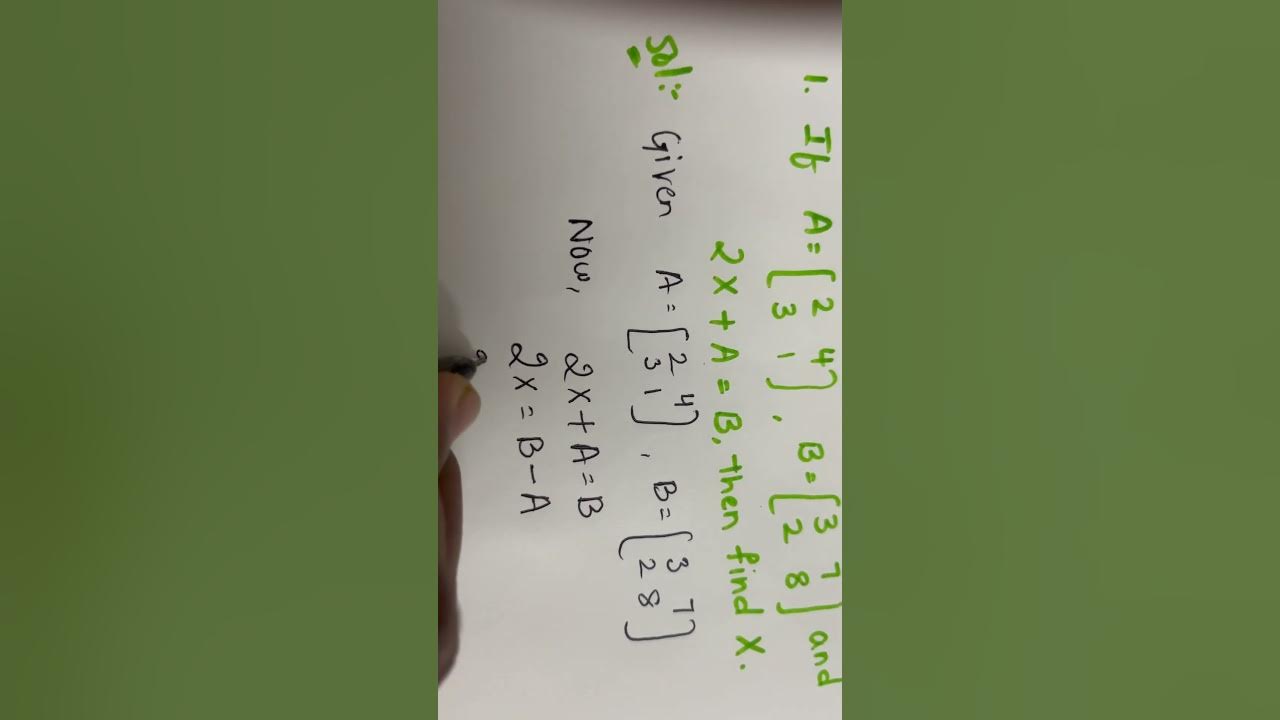 1. If A = [2 4
3 1], B = [3 7
2 8] and
2X + A = B, then find X.
Sol:- Given A = [2 4
3 1], B = [3 7
2 8]
Now, 2X + A = B
2X = B - A
2